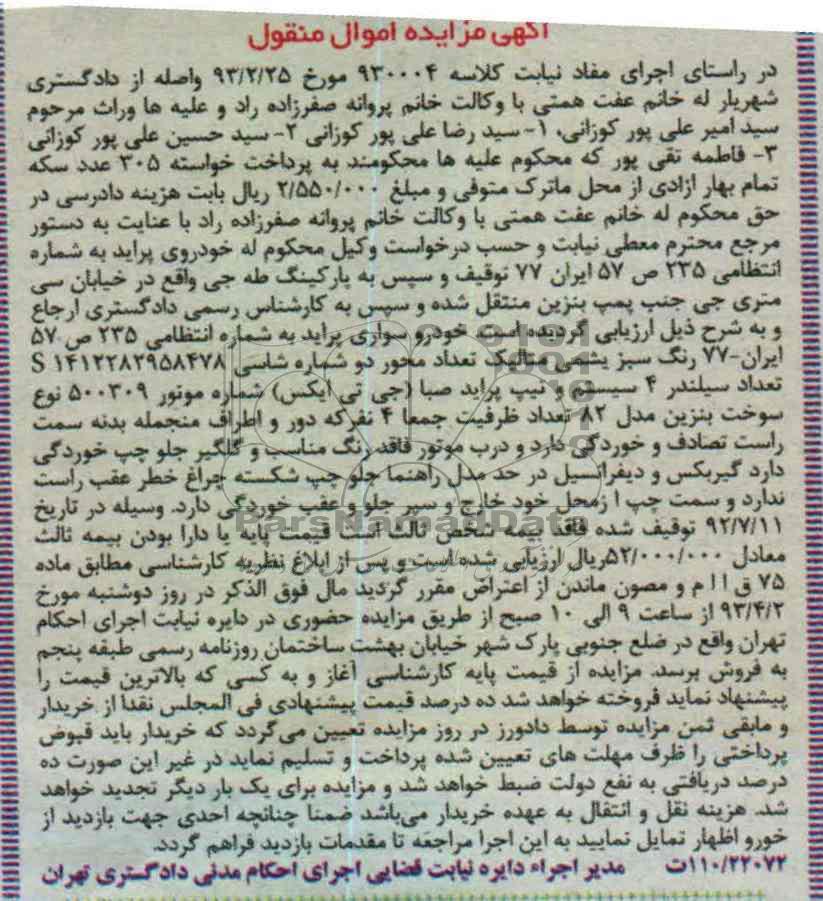 آگهی مزایده اموال منقول
در راستای اجرای مفاد نیابت کلاسه ۹۳۰۰۰۴ مورخ ۹۳/۲/۲۵ واصله از دادگستری
شهریار له خانم عفت همتی با وکالت خانم پروانه صفرزاده راد و علیه ها وراث مرحوم
سید امیر علی پور کوزانی، ۱- سید رضا علی پور کوزانی ۲- سید حسین علی پور کوزانی
۳- فاطمه تقی پور که محکوم علیه ها محکومند به پرداخت خواسته ۳۰۵ عدد سکه
تمام بهار ازادی از محل ماترک متوفی و مبلغ ۲/۵۵۰/۰۰۰ ریال بابت هزینه دادرسی در
حق محکوم له خانم عفت همتی با وکالت خانم پروانه صفرزاده راد با عنایت به دستور
مرجع محترم معطی نیابت و حسب درخواست وکیل محکوم له خودروی پراید به شماره
انتظامی ۲۳۵ ص ۵۷ ایران ۷۷ توقیف و سپس به پارکینگ طه جی واقع در خیابان سی
متری جی جنب پمپ بنزین منتقل شده و سپس به کارشناس رسمی دادگستری ارجاع
و به شرح ذیل ارزیابی گردیده است خودرو سواری پراید به شماره انتظامی ۲۳۵ ص ۵۷
ایران-۷۷ رنگ سبز یشمی متالیک تعداد محور دو شماره شاسی S ۱۴۱۲۲۸۲۹۵۸۴۷۸
تعداد سیلندر ۴ سیستم و تیپ پراید صبا (جی تی ایکس) شماره موتور ۵۰۰۳۰۹ نوع
سوخت بنزین مدل ۸۲ تعداد ظرفیت جمعا ۴ نفرکه دور و اطراف منجمله بدنه سمت
راست تصادف و خوردگی دارد و درب موتور فاقد رنگ مناسب و گلگیر جلو چپ خوردگی
دارد گیربکس و دیفرانسیل در حد مدل راهنما جلو چپ شکسته چراغ خطر عقب راست
ندارد و سمت چپ ا زمحل خود خارج و سپر جلو و عقب خوردگی دارد. وسیله در تاریخ
۹۲/۷/۱۱ توقیف شده فاقد بیمه شخص ثالث است قیمت پایه با دارا بودن بیمه ثالث
معادل ۵۲/۰۰۰/۰۰۰ریال ارزیابی شده است و پس از ابلاغ نظریه کارشناسی مطابق ماده
۷۵ ق ا ا م و مصون ماندن از اعتراض مقرر گردید مال فوق الذکر در روز دوشنبه مورخ
۹۳/۴/۲ از ساعت ۹ الی ۱۰ صبح از طریق مزایده حضوری در دایره نیابت اجرای احکام
تهران واقع در ضلع جنوبی پارک شهر خیابان بهشت ساختمان روزنامه رسمی طبقه پنجم
به فروش برسد. مزایده از قیمت پایه کارشناسی آغاز و به کسی که بالاترین قیمت را
پیشنهاد نماید فروخته خواهد شد ده درصد قیمت پیشنهادی فی المجلس نقدا از خریدار
و مابقی ثمن مزایده توسط دادورز در روز مزایده تعیین می‌گردد که خریدار باید قبوض
پرداختی را ظرف مهلت های تعیین شده پرداخت و تسلیم نماید در غیر این صورت ده
درصد دریافتی به نفع دولت ضبط خواهد شد و مزایده برای یک بار دیگر تجدید خواهد
شد. هزینه نقل و انتقال به عهده خریدار می‌باشد ضمنا چنانچه احدی جهت بازدید از
خورو اظهار تمایل نمایید به این اجرا مراجعه تا مقدمات بازدید فراهم گردد.
۱۱۰/۲۲۰۷۲ت مدیر اجراء دایره نیابت قضایی اجرای احکام مدنی دادگستری تهران
ParsNamadData